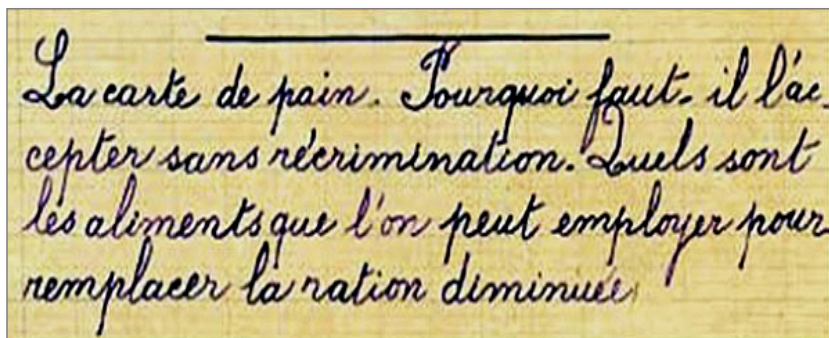 La carte de pain. Pourquoi faut-il l'ac-
cepter sans récrimination. Quels sont
les aliments que l'on peut employer pour
remplacer la ration diminuée